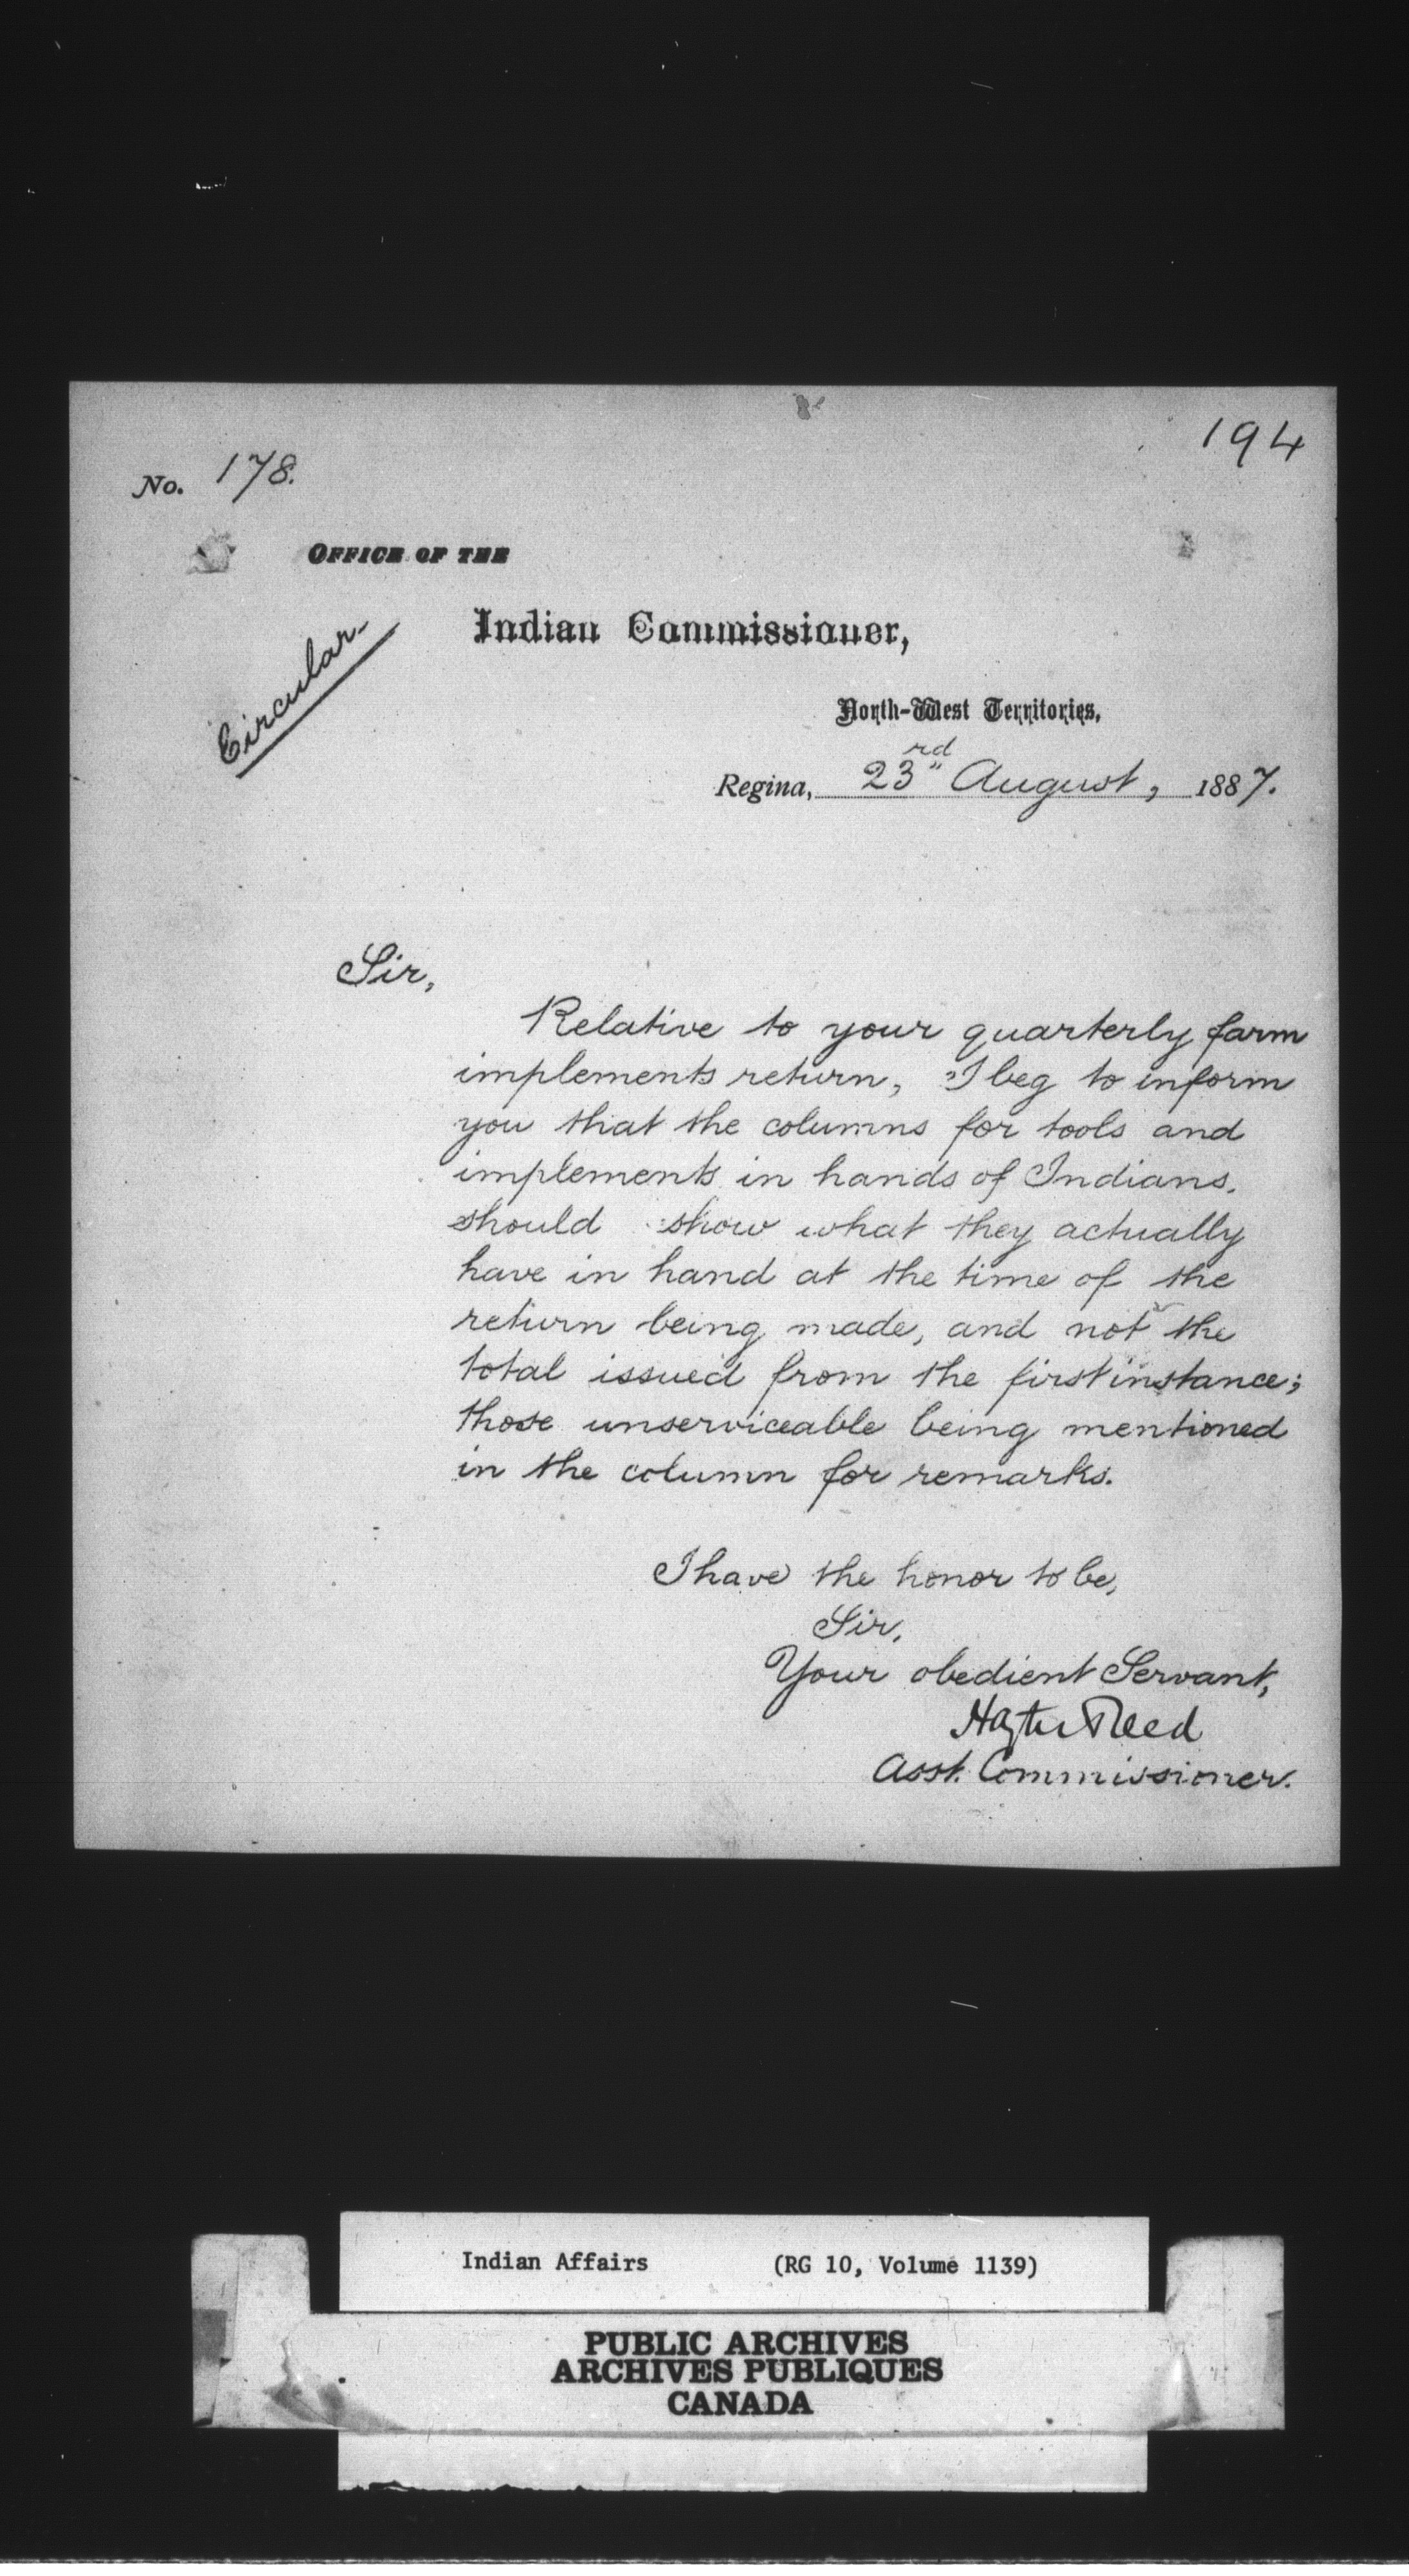 194
No. 178.
OFFICE OF THE
Indian Commissioner,
Circular.
North-West Territories,
Regina, 23rd August, 1887.
Sir,
Relative to your quarterly farm
implements return, I beg to inform
you that the columns for tools and
implements in hands of Indians.
should show what they actually
have in hand at the time of the
return being made, and not the
total issued from the first instance;
those unserviceable being mentioned
in the column for remarks.
I have the honor to be,
Sir,
Your obedient Servant,
Hayter Reed
Asst. Commissioner.
Indian Affairs (RG 10, Volume 1139)
PUBLIC ARCHIVES
ARCHIVES PUBLIQUES
CANADA